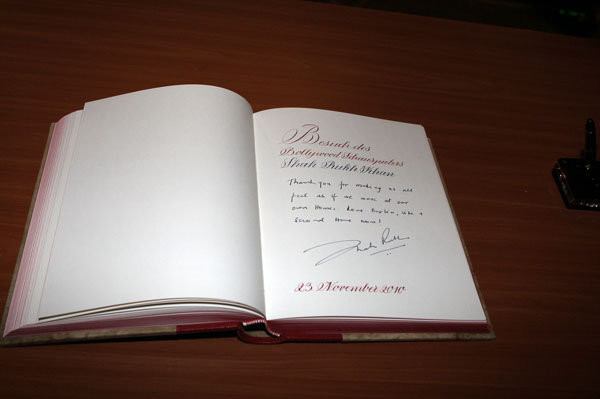 Besuch des
Bollywood Schauspielers
Shah Rukh Khan
Thank you for making us all
feel as if we were at our
own Homes. Love Berlin, like a
second Home now!
23 November 2010